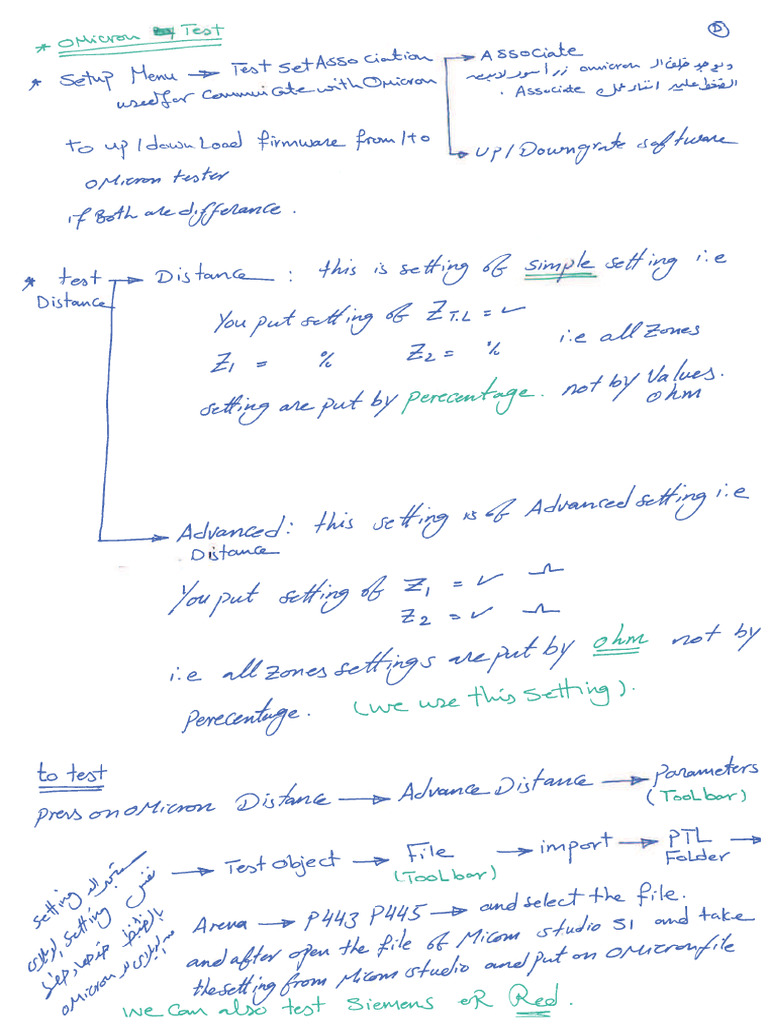 * OMicron Test
①
* Setup Menu → Test Set Association → Associate
used for Communicate with OMicron
الـ omicron زر أسود
الضغط عليه Associate.
to up/down Load firmware from/to → Up/Downgrate software
OMicron tester
if Both are differance.
* test → Distance : this is setting of simple setting i.e
Distance
You put setting of Z T.L = ✓
Z1 = % Z2 = % i.e all Zones
setting are put by perecentage. not by Values.
ohm
→ Advanced : this setting is of Advanced setting i.e
Distance
You put setting of Z1 = ✓ Ω
Z2 = ✓ Ω
i.e all Zones settings are put by ohm not by
Perecentage. (we use this Setting).
to test
press on OMicron Distance → Advance Distance → Parameters
(Toolbar)
→ Test Object → File → import → PTL →
(Toolbar) Folder
Areva → P443 P445 → and select the file.
and after open the file of Micom studio S1 and take
the setting from Micom studio and put on OMicron file
setting
نفس setting
بالضبط
OMicron
we can also test Siemens or Red.